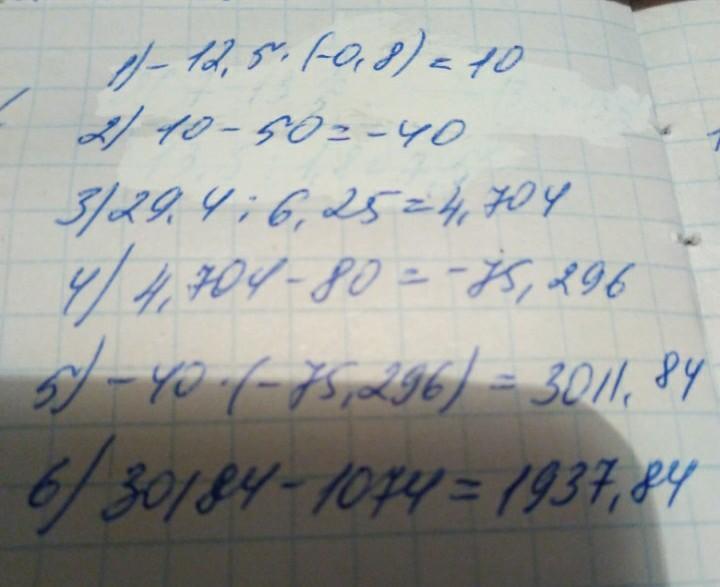 1) -12,5·(-0,8)=10
2) 10-50=-40
3) 29.4:6,25=4,704
4) 4,704-80=-75,296
5) -40·(-75,296)=3011.84
6) 30184-1074=1937,84